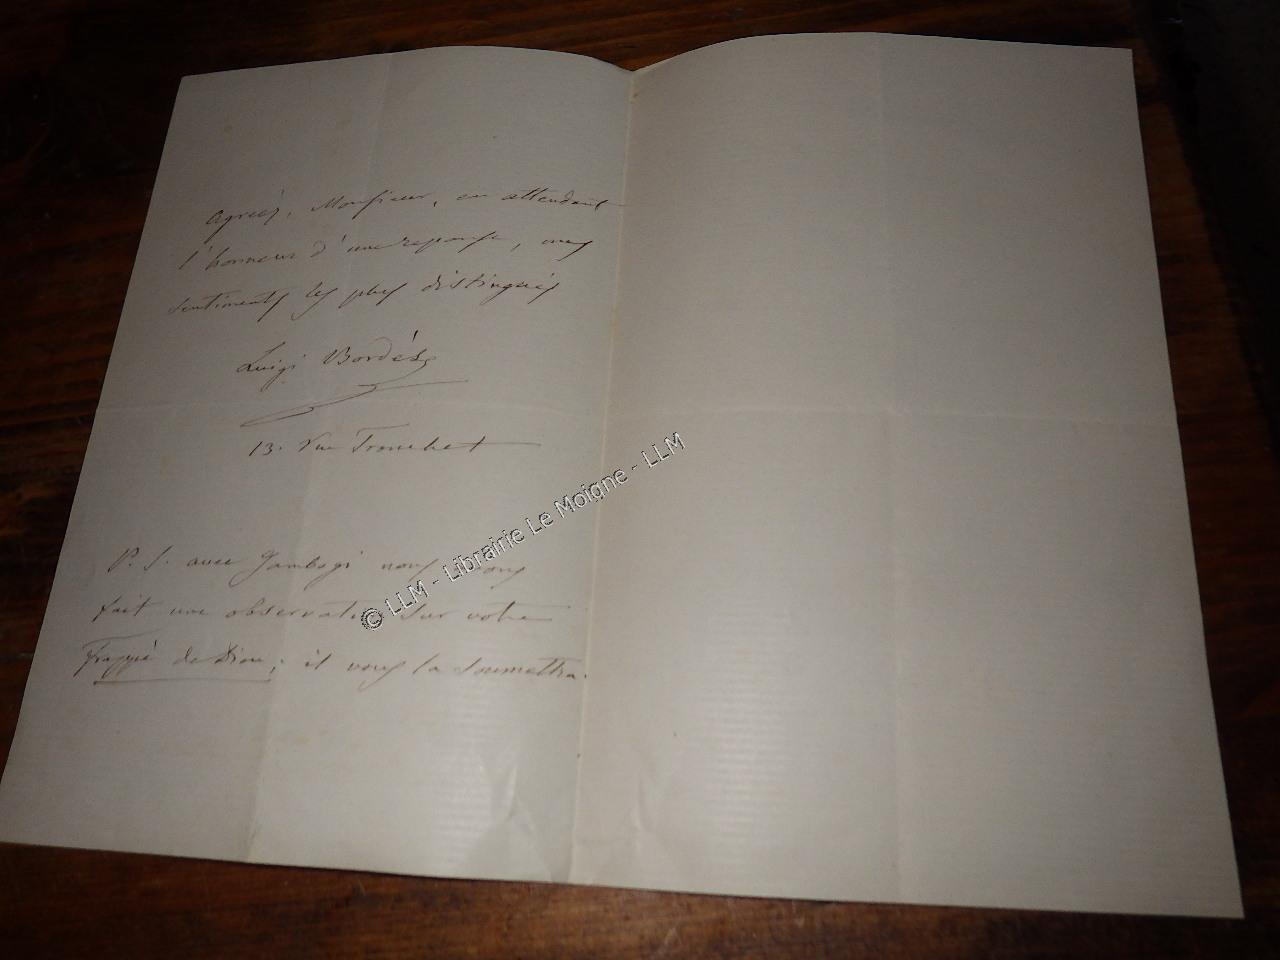 agréez, Monsieur, en attendant
l'honneur d'une reponse, mes
sentiments les plus distingués
Luigi Bordèse
13. rue Tronchet
P. S. avec Gambogi nous avons
fait une observation sur votre
Frappé de Dieu; il vous la soumettra.
© LLM - Librairie Le Moigne - LLM